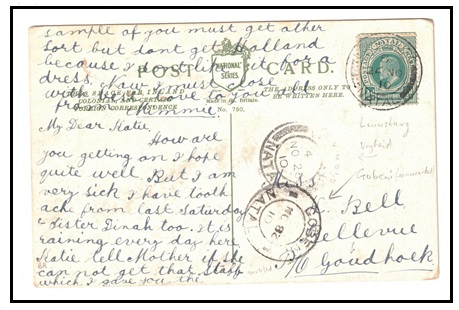 sample of you must get other
sort but dont get Holland
because I dont like it for a
dress. Now I must close
with love to you
from Minnie
POST CARD.
"NATIONAL"
SERIES
THE ADDRESS ONLY TO
BE WRITTEN HERE.
Made in Gt. Britain.
No. 780.
My Dear Katie,
How are
you getting on I hope
quite well. But I am
very sick I have tooth
ache from last Saturday
& Sister Dinah too. It is
raining every day here
Katie tell Mother if she
can not get that Staff
which I gave you the
NATAL
NATAL
Miss
K. Bell
Bellevue
C/O Goudhoek